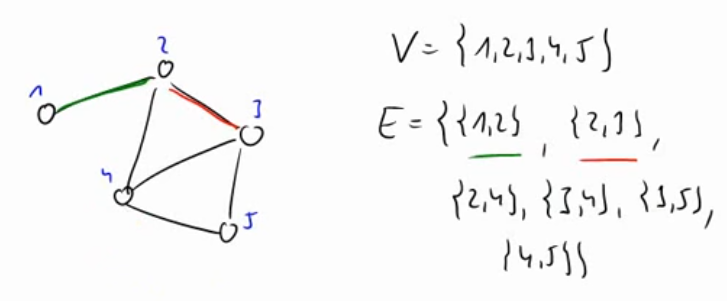 1
2
3
4
5
V = {1,2,3,4,5}
E = {{1,2}, {2,3},
{2,4}, {3,4}, {3,5},
{4,5}}